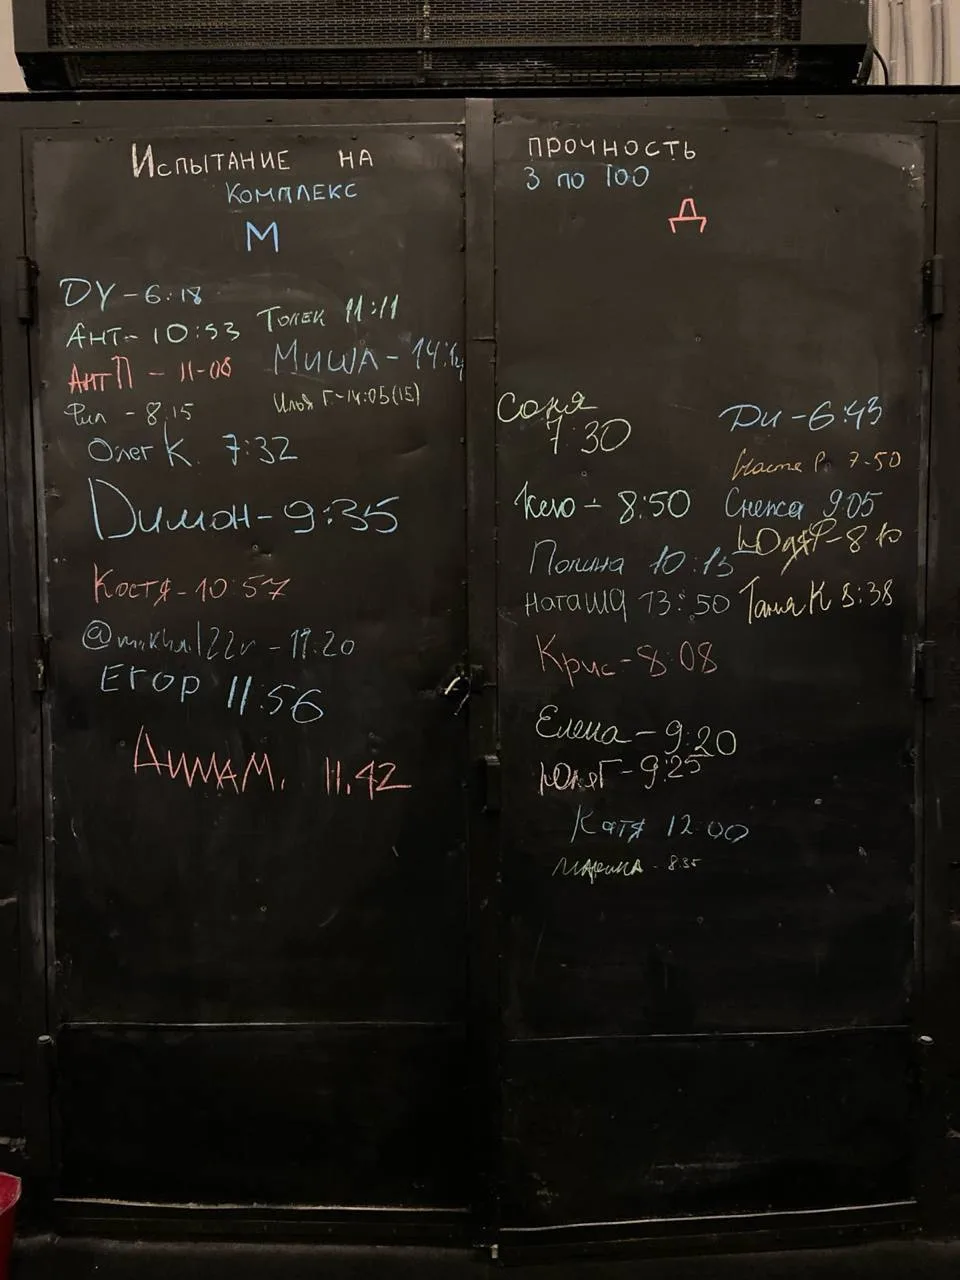 Испытание на прочность
Комплекс 3 по 100
М
DY - 6:18
Ант - 10:53
Толек 11:11
Ант П - 11-08
Миша - 14:14
Фил - 8:15
Илья Г. - 14:05 (15)
Олег К. 7:32
Dимон - 9:35
Костя - 10:57
Егор 11:56
Дима М. 11.42
Д
Соня
7:30
Ди - 6:43
Настя Р. 7-50
Кею - 8:50
Снежа 9:05
Полина 10:15
Юля Р - 8:10
Наташа 13:50
Таня К 8:38
Крис - 8:08
Елена - 9:20
Юля Г - 9:25
Катя 12:00
Марина - 8:35